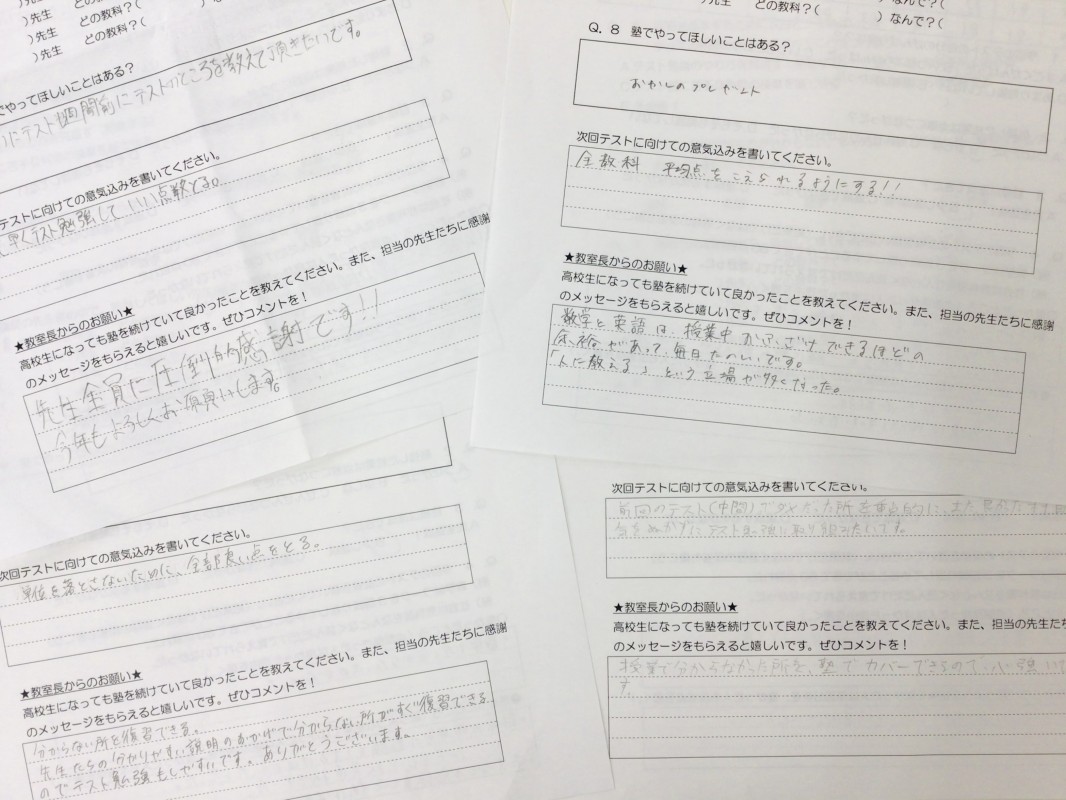 )先生 どの教科?(
)先生 どの教科?(
)先生 どの教科?(
でやってほしいことはある?
テスト1週間前にテストのところを教えて頂きたいです。
テストに向けての意気込みを書いてください。
早くテスト勉強していい点数とる。
★教室長からのお願い★
高校生になっても塾を続けていて良かったことを教えてください。また、担当の先生たちに感謝
のメッセージをもらえると嬉しいです。ぜひコメントを!
先生全員に圧倒的感謝です!!
今年もよろしくお願いします。
)先生 どの教科?( ) なんで?(
Q. 8 塾でやってほしいことはある?
おかしのプレゼント
次回テストに向けての意気込みを書いてください。
全教科 平均点をこえられるようにする!!
★教室長からのお願い★
高校生になっても塾を続けていて良かったことを教えてください。また、担当の先生たちに感謝
のメッセージをもらえると嬉しいです。ぜひコメントを!
数学と英語は、授業中おふざけできるほどの
余裕があって、毎日たのしいです。
「人に教える」という立場が多くなった。
次回テストに向けての意気込みを書いてください。
単位を落とさないために、全部良い点をとる。
★教室長からのお願い★
高校生になっても塾を続けていて良かったことを教えてください。また、担当の先生たちに感謝
のメッセージをもらえると嬉しいです。ぜひコメントを!
分からない所を復習できる。
先生たちの分かりやすい説明のおかげで分からない所がすぐ復習できる
のでテスト勉強もしやすいです。ありがとうございます。
次回テストに向けての意気込みを書いてください。
前回のテスト(中間)でダメだった所を重点的に、また
気をぬかずにテストに取り組みたいです
★教室長からのお願い★
高校生になっても塾を続けていて良かったことを教えてください。また、担当の先生た
のメッセージをもらえると嬉しいです。ぜひコメントを!
授業で分からなかった所を、塾でカバーできるので、心強いで
す